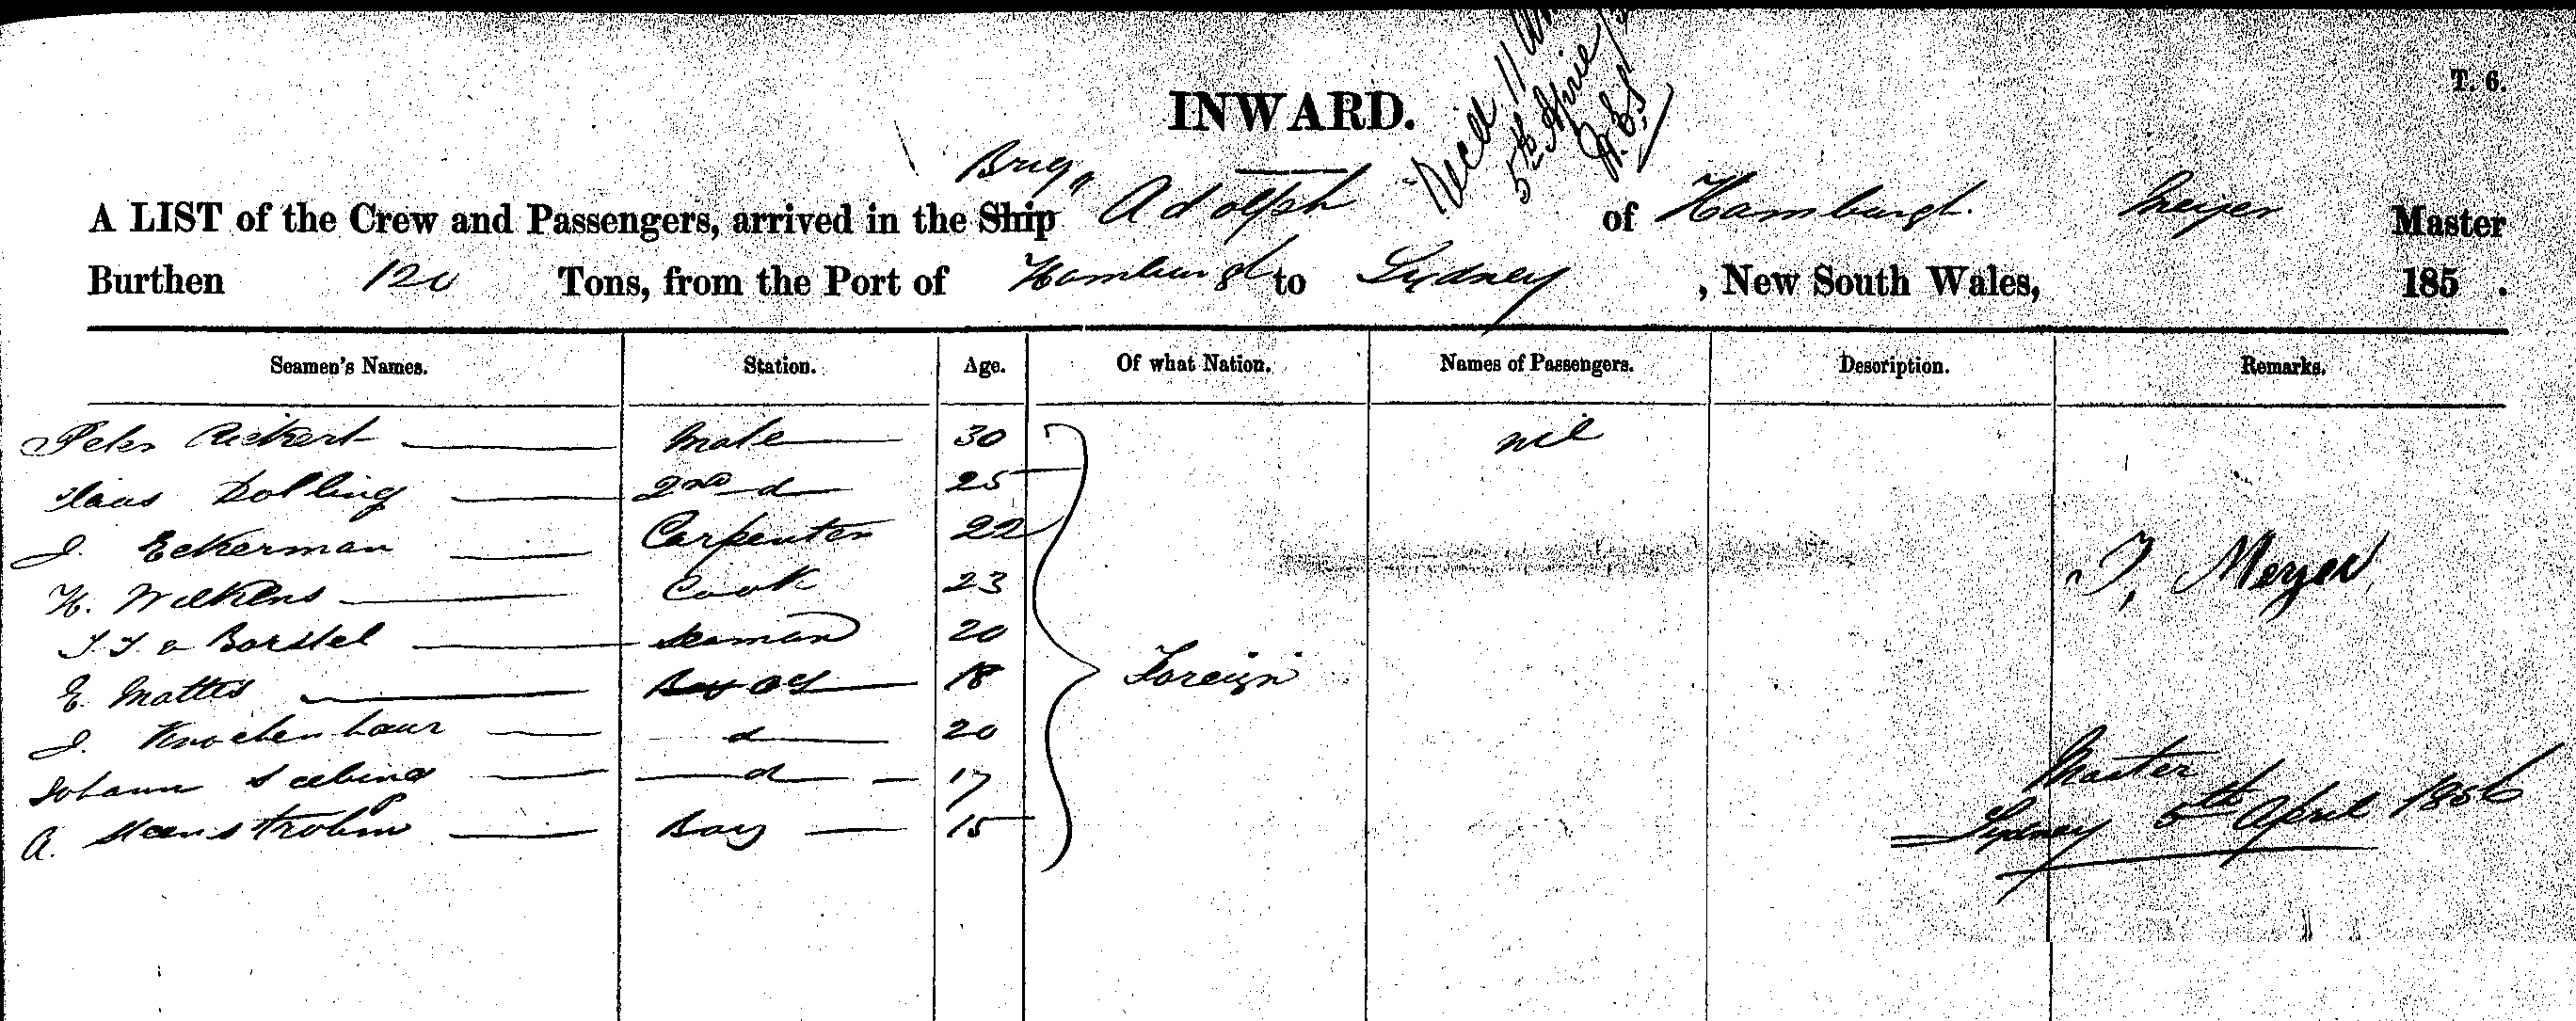 T. 6.
INWARD.
Recd 11
5th April
Brig
A LIST of the Crew and Passengers, arrived in the Ship "Adolph of Hamburgh. Meyer Master
Burthen 120 Tons, from the Port of Hamburgh to Sydney, New South Wales, 185 .
Seamen's Names. Station. Age. Of what Nation. Names of Passengers. Description. Remarks.
Peter Rickert Mate 30 nil
Claus Dolling 2nd d 25
J. Eckerman Carpenter 22
H. Wilkens Cook 23 J, Meyer
J J v Borstel Seaman 20
E. Mattes Boy OS 18 Foreign
J. Knochenhaur d 20
Johann d 17 Master
A. Boy 15 Sydney 5th April 1856